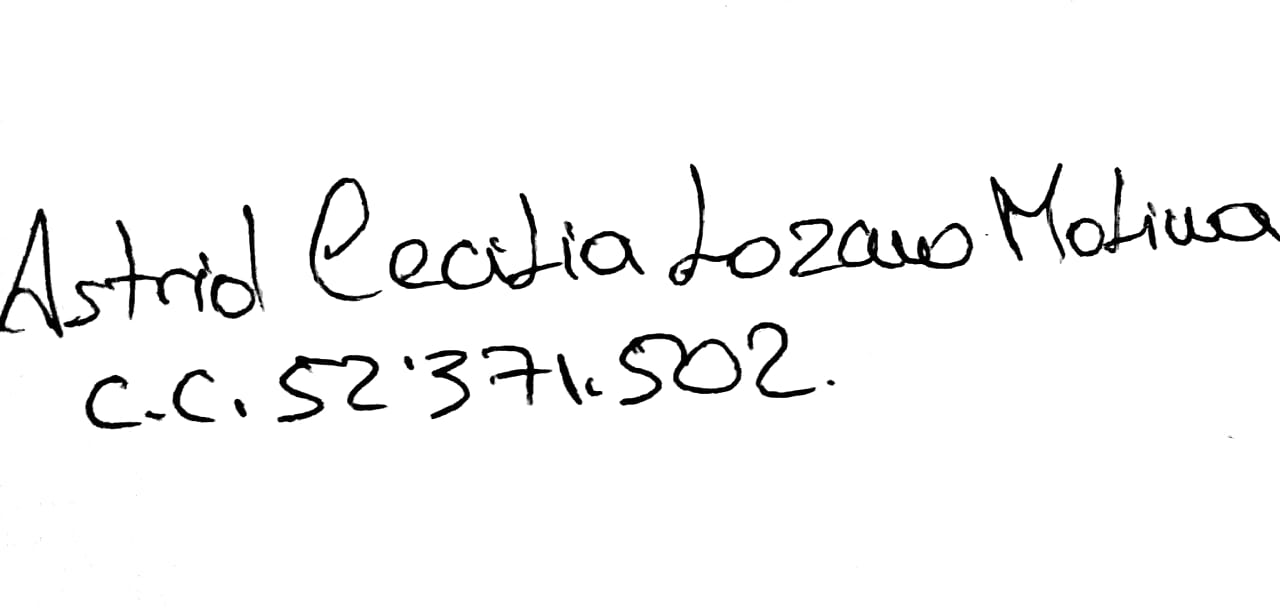 Astrid Cecilia Lozano Molina
C.C. 52'371.502.